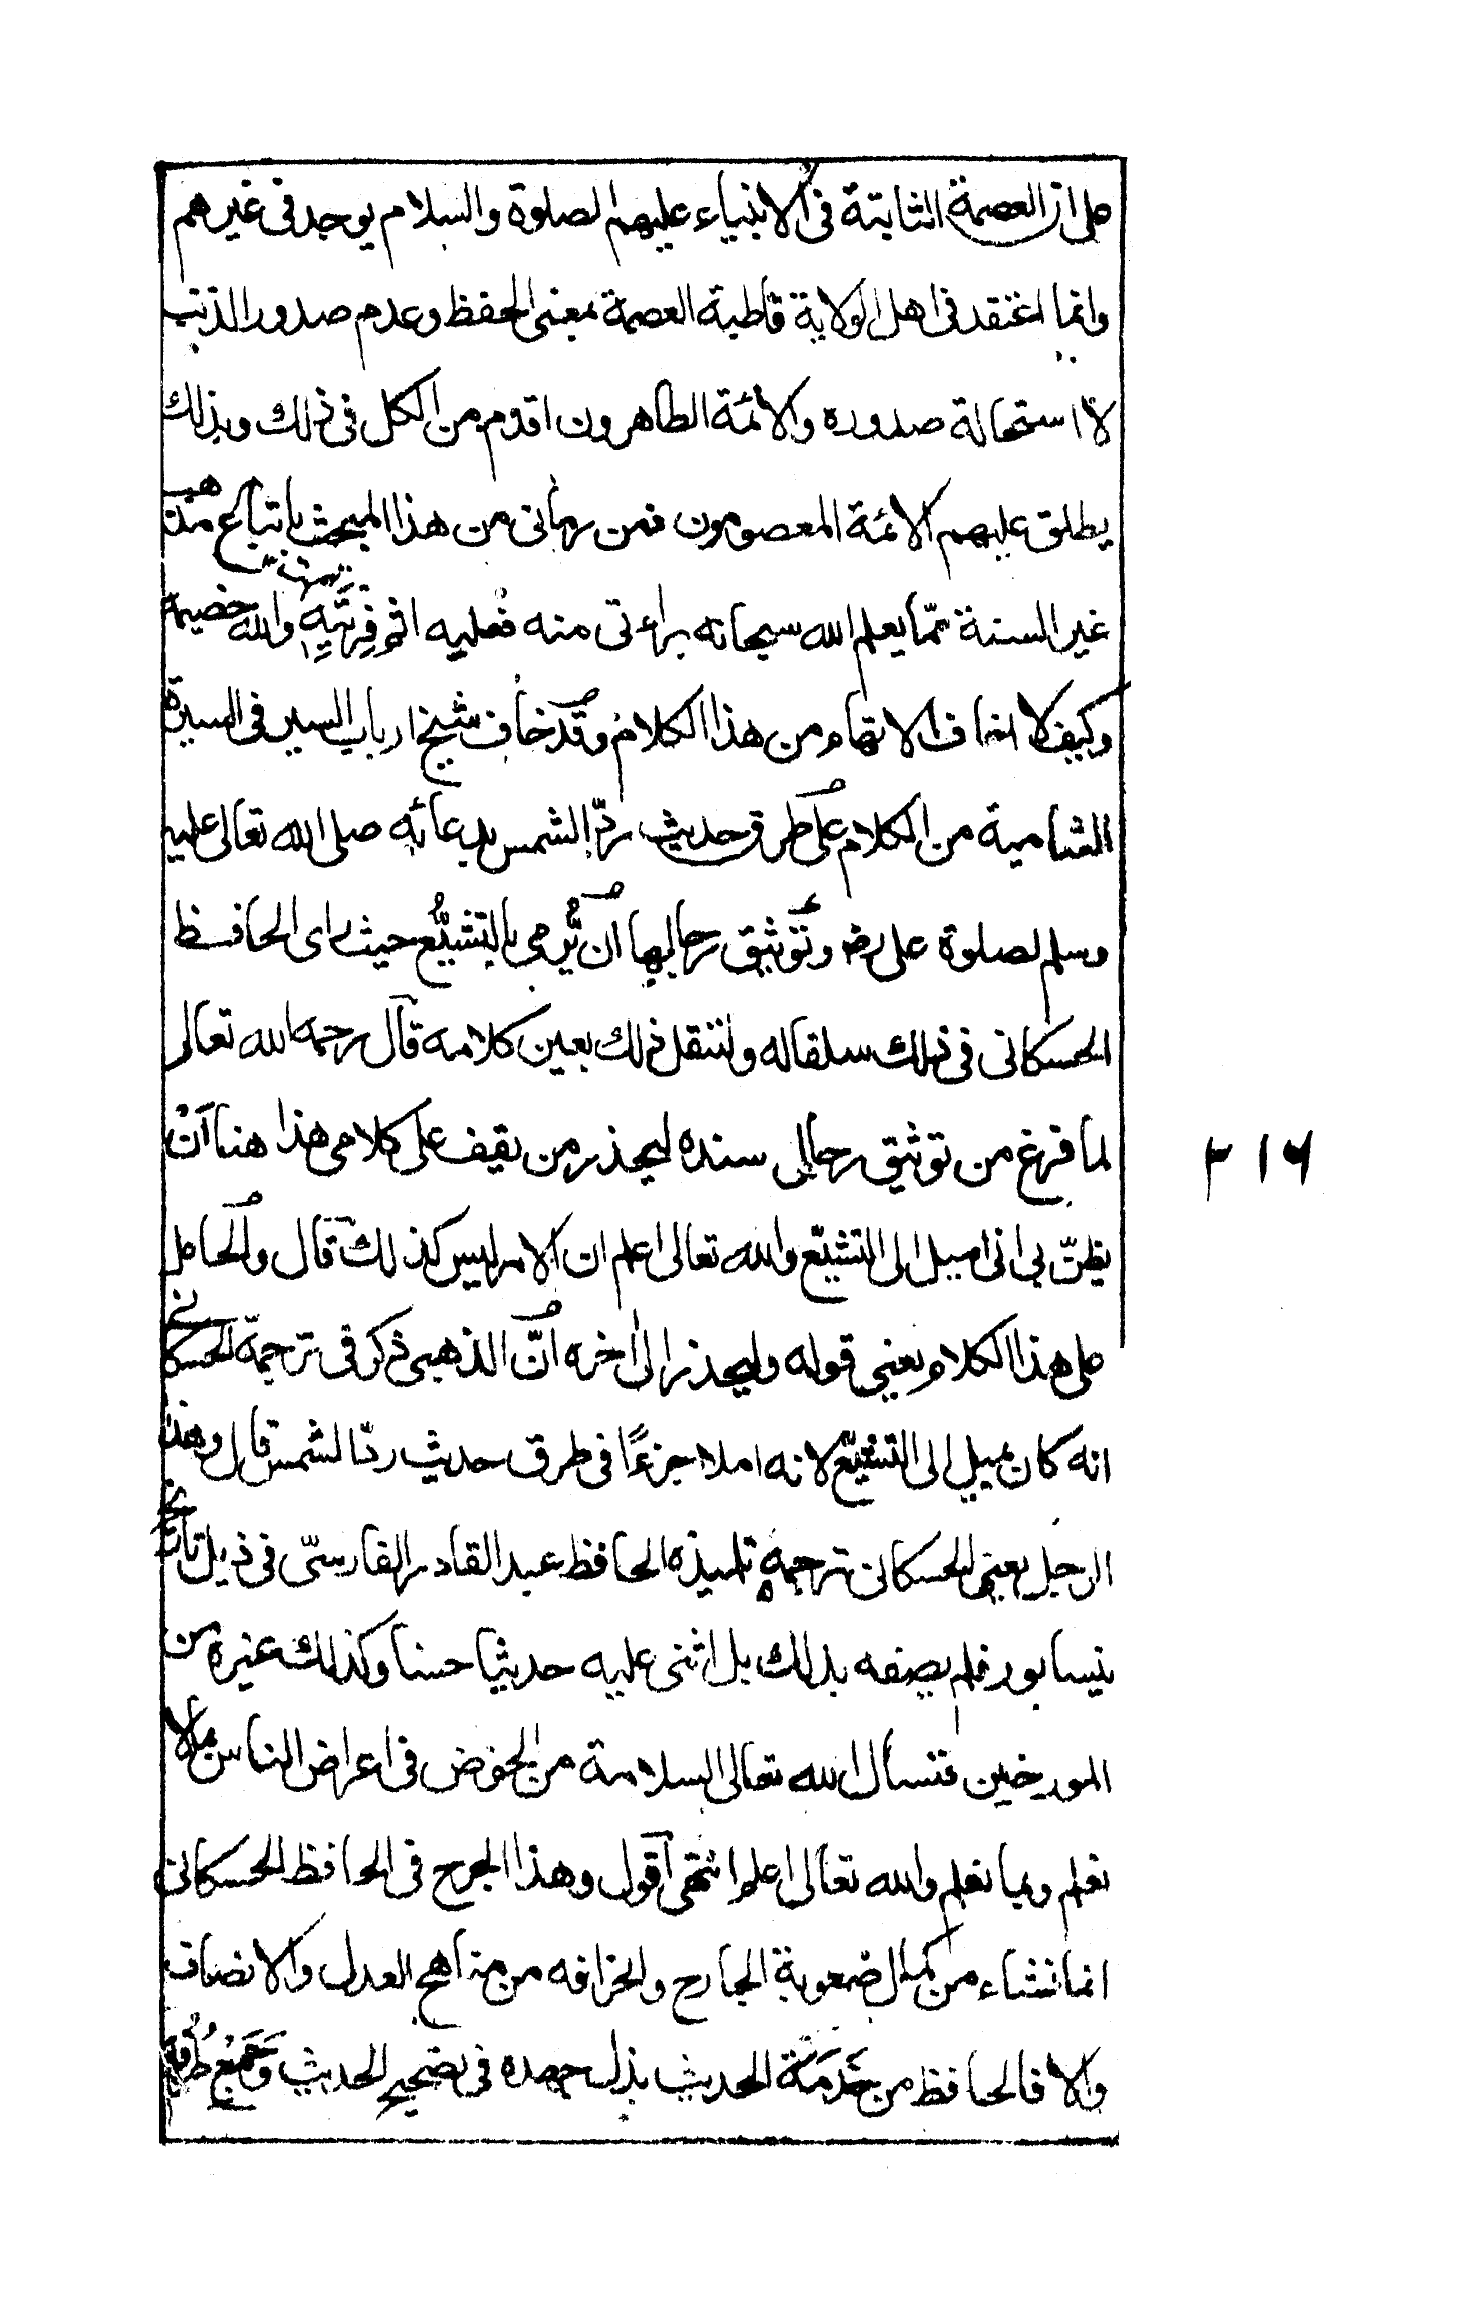 على ان العصمة الثابتة فى الانبياء عليهم الصلوة والسلام يوجد فى غيرهم
وانما اعتقد فى اهل الولاية قاطبة العصمة بمعنى الحفظ وعدم صدور الذنب
لا استحالة صدوره والائمة الطاهرون اقدم من الكل فى ذلك وبذلك
يطلق عليهم الائمة المعصومون فمن رمانى من هذا المبحث باتباع مذهب
غير السنة مما يعلم الله سبحانه براءتى منه فعليه اثم فِرْيَتِهِ والله خصيمه
وكيف لا اخاف الاتهام من هذا الكلام وقد خاف شيخ ارباب السير فى السيرة
الشامية من الكلام على طرق حديث ردّ الشمس بدعائه صلى الله تعالى عليه
وسلم لصلوة على رضـ وتوثيق رجالها ان يُرمى بالتشيُّع حيث راى الحافظ
الحسكانى فى ذلك سلفا له ولننقل ذلك بعين كلامه قال رحمه الله تعالى
لما فرغ من توثيق رجال سنده ليحذر من يقف على كلامى هذا هنا اَنْ
يظنّ بى انى اميل الى التشيّع والله تعالى اعلم ان الامر ليس كذلك قال والحامل
على هذا الكلام يعنى قوله وليحذر الى اخره انّ الذهبى ذكر فى ترجمة الحسكانى
انه كان يميل الى التشيّع لانه املا جزءًا فى طرق حديث ردّ الشمس قال وهذا
الرجل يعنى الحسكانى ترجمه تلميذه الحافظ عبد القادر الفارسىّ فى ذيل تاريخ
نيسابور فلم يصفه بذلك بل اثنى عليه حديثا حسنا وكذلك غيره من
المورخين فنسأل الله تعالى السلامة من الخوض فى اعراض الناس بما لا
نعلم وبما نعلم والله تعالى اعلم انتهى اقول وهذا الجرح فى الحافظ الحسكانى
انما نشاء من كمال صعوبة الجارح وانحرافه من مناهج العدل والانصاف
والا فالحافظ من خَدَمَة الحديث بذل جهده فى تصحيح الحديث وَجَمْعِ طُرُقِه
٢١٦